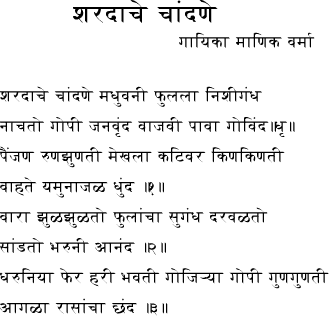 शरदाचे चांदणे
गायिका माणिक वर्मा
शरदाचे चांदणे मधुवनी फुलला निशीगंध
नाचतो गोपी जनवृंद वाजवी पावा गोविंद॥धृ॥
पैंजण रुणझुणती मेखला कटिवर किणकिणती
वाहते यमुनाजळ धुंद ॥१॥
वारा झुळझुळतो फुलांचा सुगंध दरवळतो
सांडतो भरुनी आनंद ॥२॥
धरुनिया फेर हरी भवती गोजिऱ्या गोपी गुणगुणती
आगळा रासांचा छंद ॥३॥